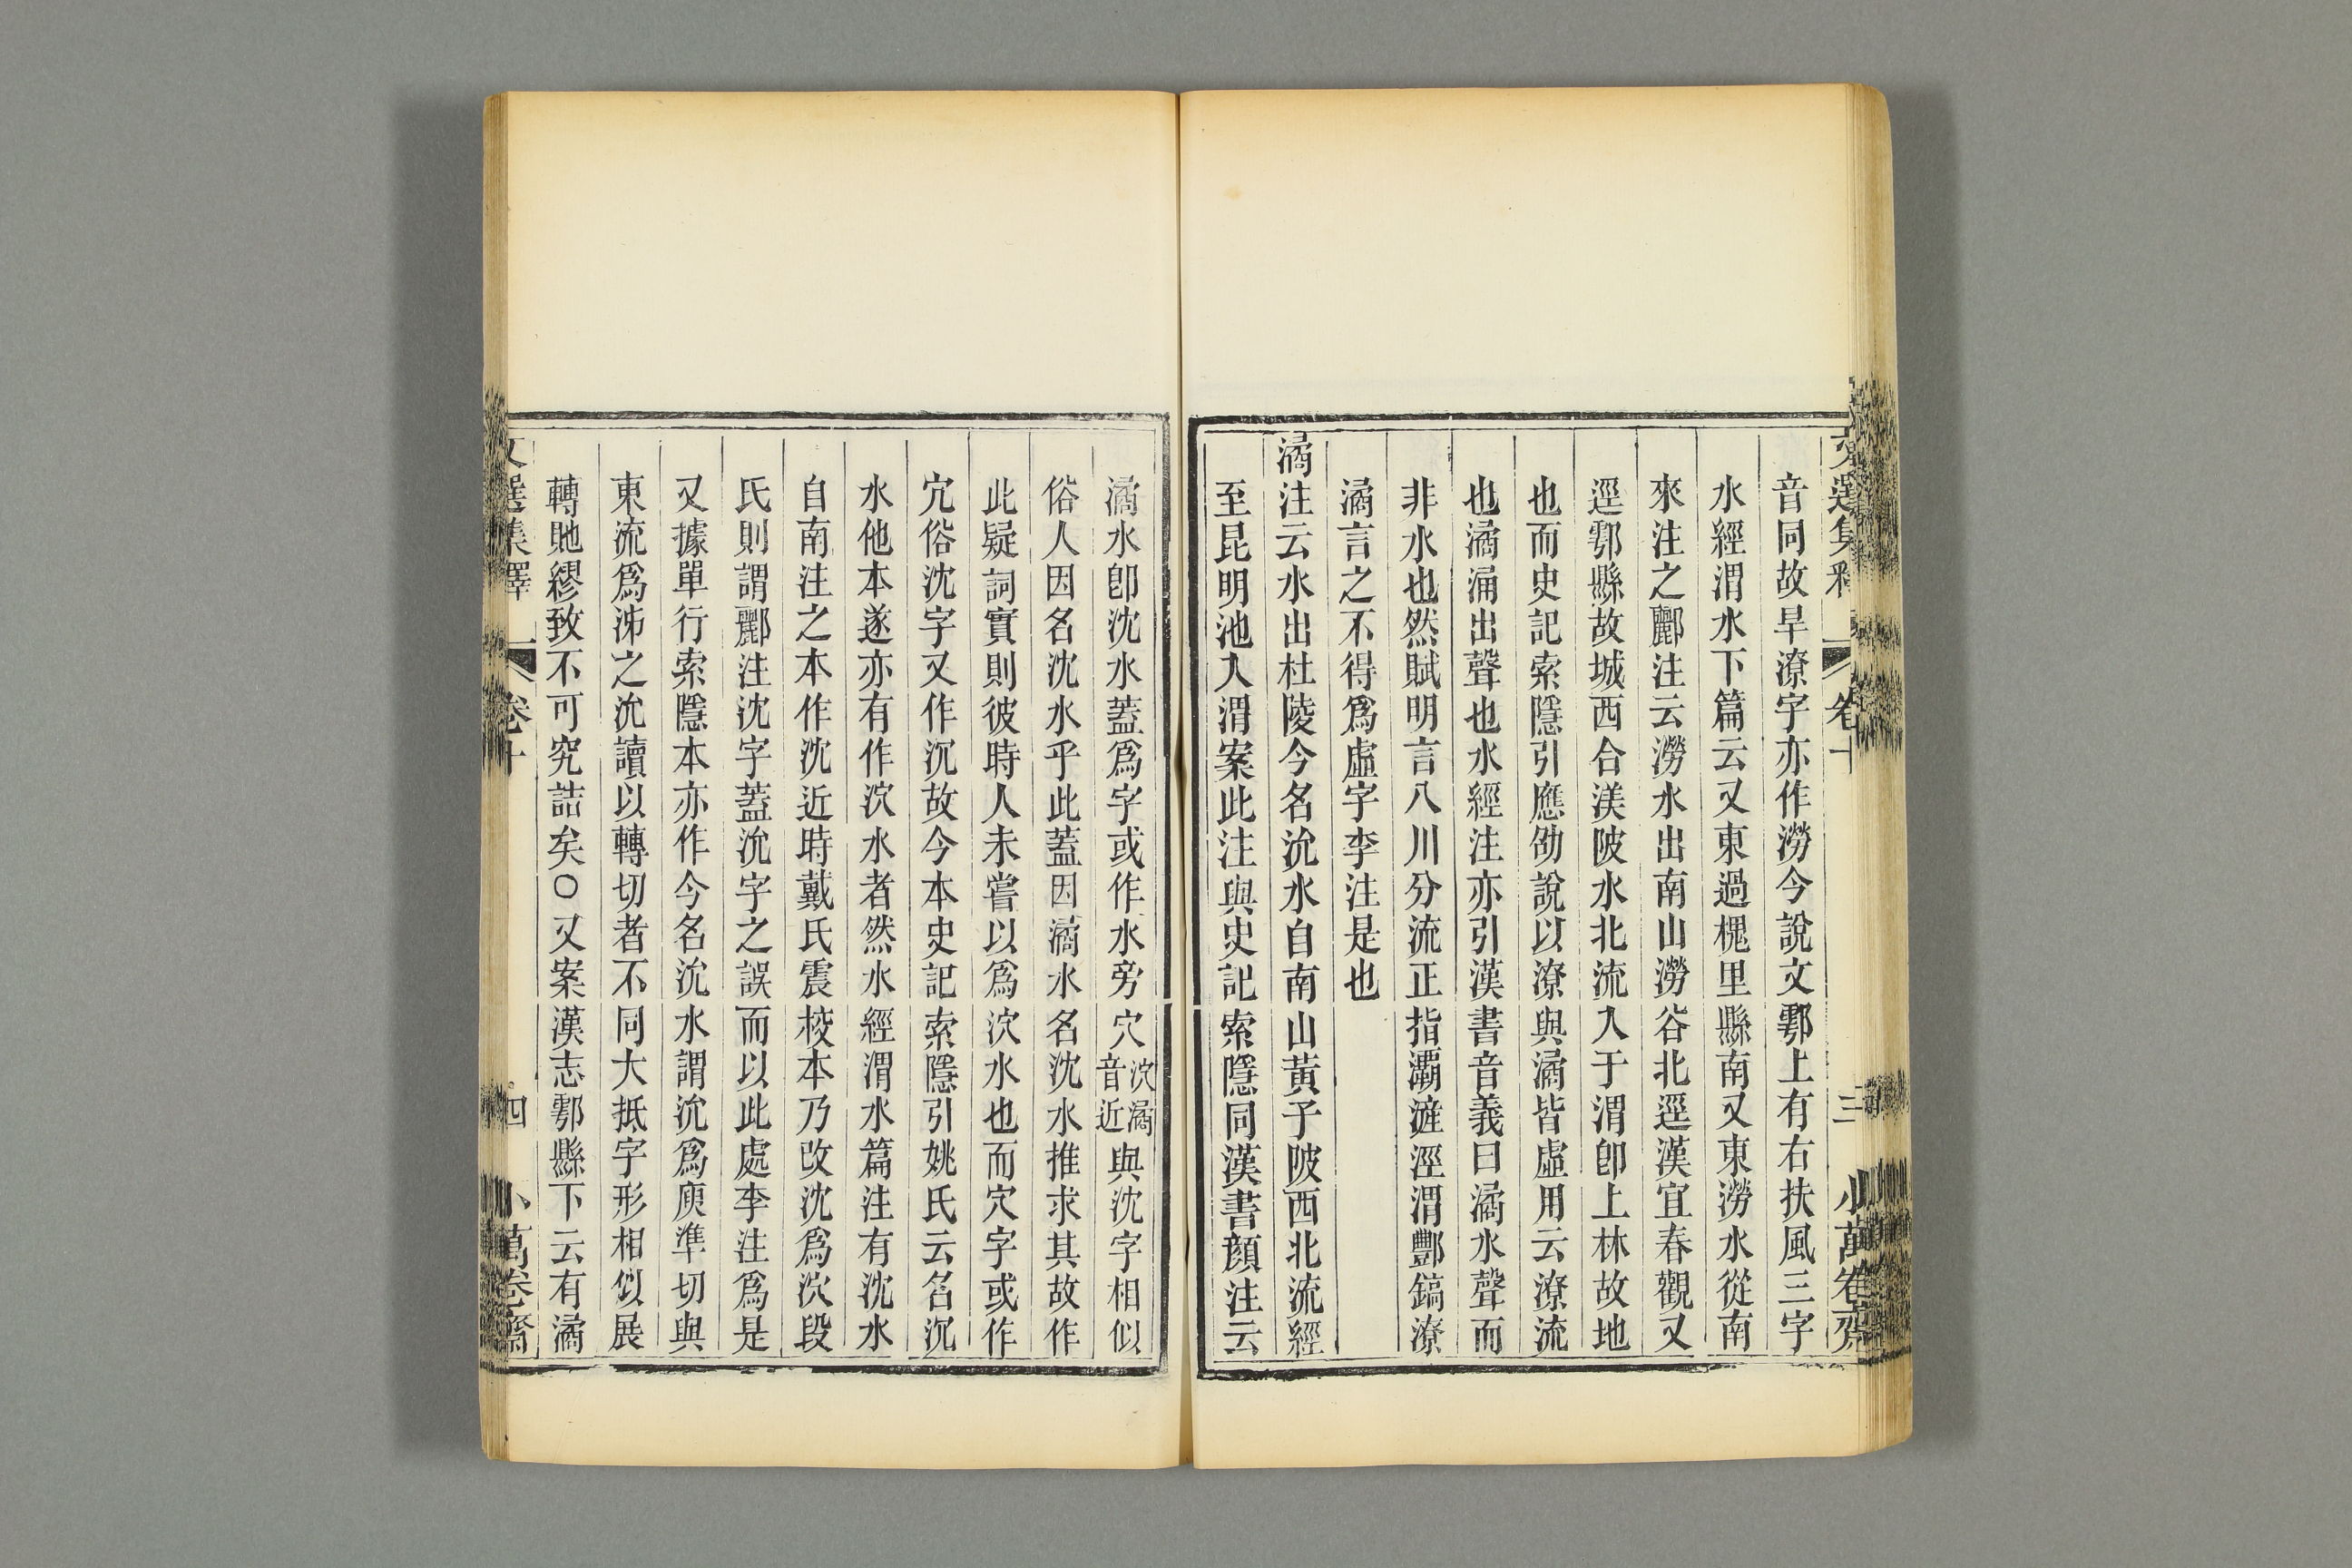 文選集釋 卷十 三 小萬卷齋
音同故旱潦字亦作澇今說文鄠上有右扶風三字
水經渭水下篇云又東過槐里縣南又東澇水從南
來注之酈注云澇水出南山澇谷北逕漢宜春觀又
逕鄠縣故城西合渼陂水北流入于渭卽上林故地
也而史記索隱引應劭說以潦與潏皆虛用云潦流
也潏涌出聲也水經注亦引漢書音義曰潏水聲而
非水也然賦明言八川分流正指灞滻涇渭酆鎬潦
潏言之不得爲虛字李注是也
潏注云水出杜陵今名沇水自南山黃子陂西北流經
至昆明池入渭案此注與史記索隱同漢書顏注云
潏水卽沈水蓋爲字或作水旁穴泬潏音近與沈字相似
俗人因名沈水乎此蓋因潏水名沈水推求其故作
此疑詞實則彼時人未嘗以爲泬水也而穴字或作
宂俗沈字又作沉故今本史記索隱引姚氏云名沉
水他本遂亦有作泬水者然水經渭水篇注有沈水
自南注之本作沈近時戴氏震校本乃改沈爲泬段
氏則謂酈注沈字蓋沇字之誤而以此處李注爲是
又據單行索隱本亦作今名沇水謂沇爲庾準切與
東流爲泲之沇讀以轉切者不同大抵字形相似展
轉貤繆致不可究詰矣○又案漢志鄠縣下云有潏
文選集釋 卷十 四 小萬卷齋